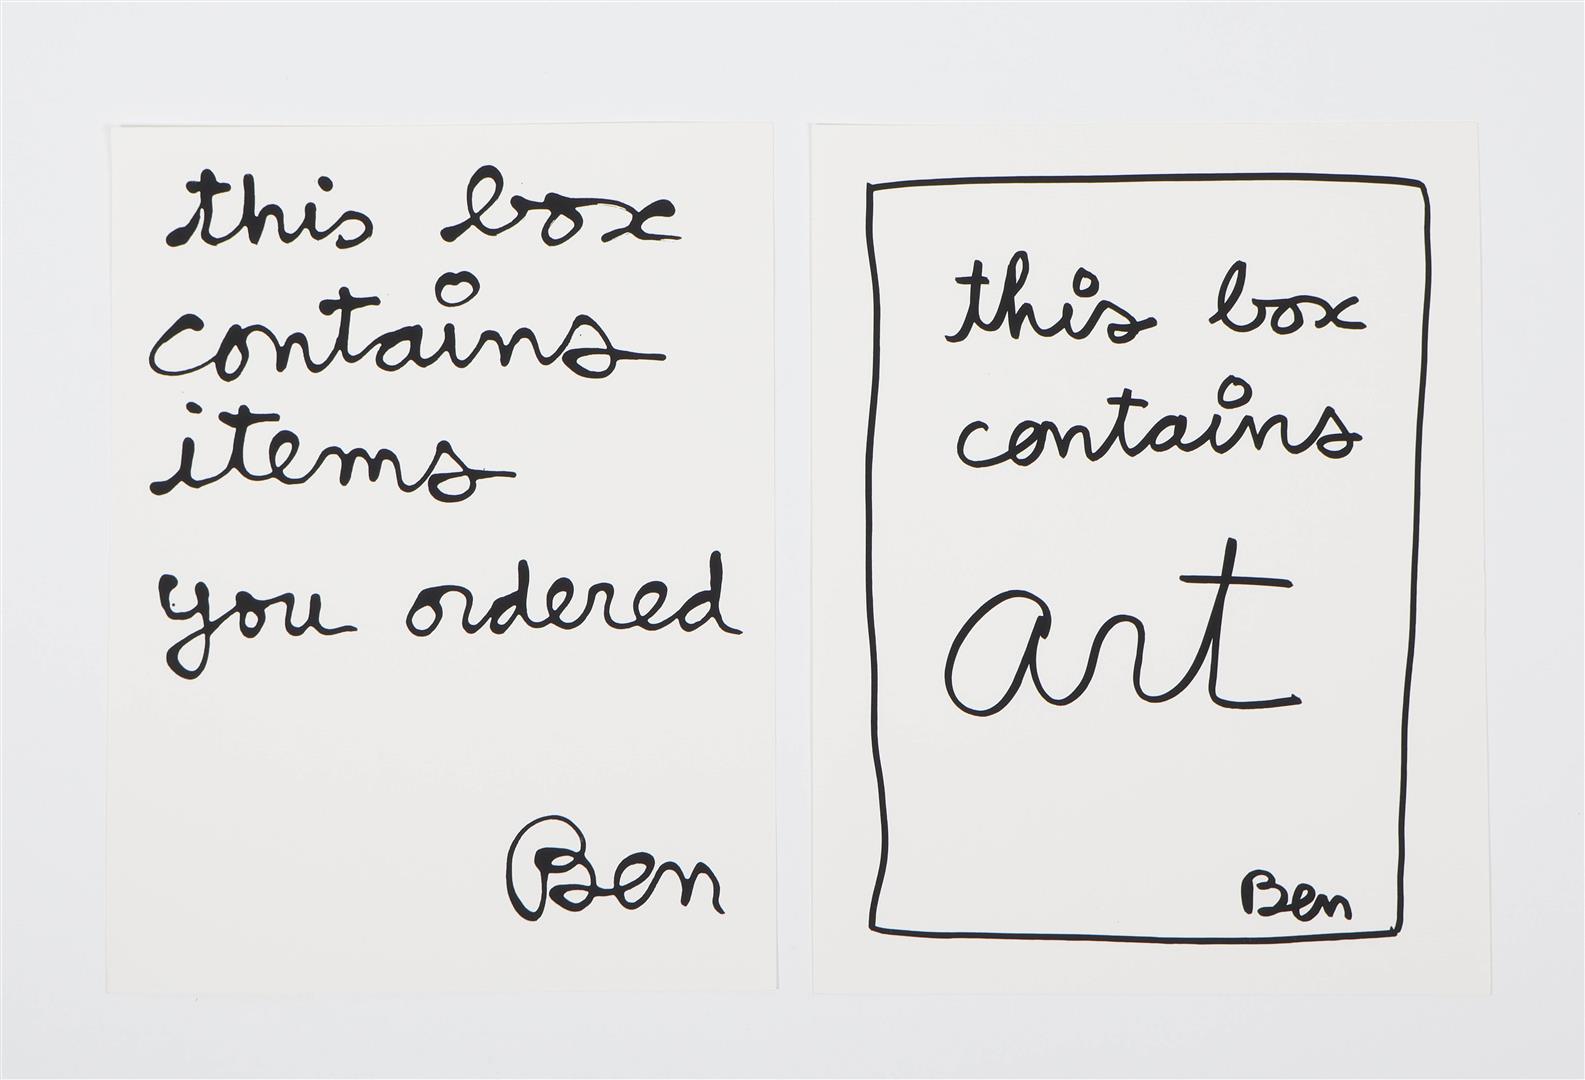 this box
contains
items
you ordered
Ben
this box
contains
art
Ben